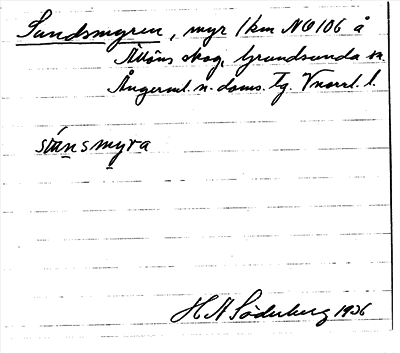 Sundsmyren, myr 1 km NO 106 å
Ällöns skog, Grundsunda sn.
Ångerml. n. doms. Tg. Vnorrl. l.
stansmyra
H A Söderberg 1936